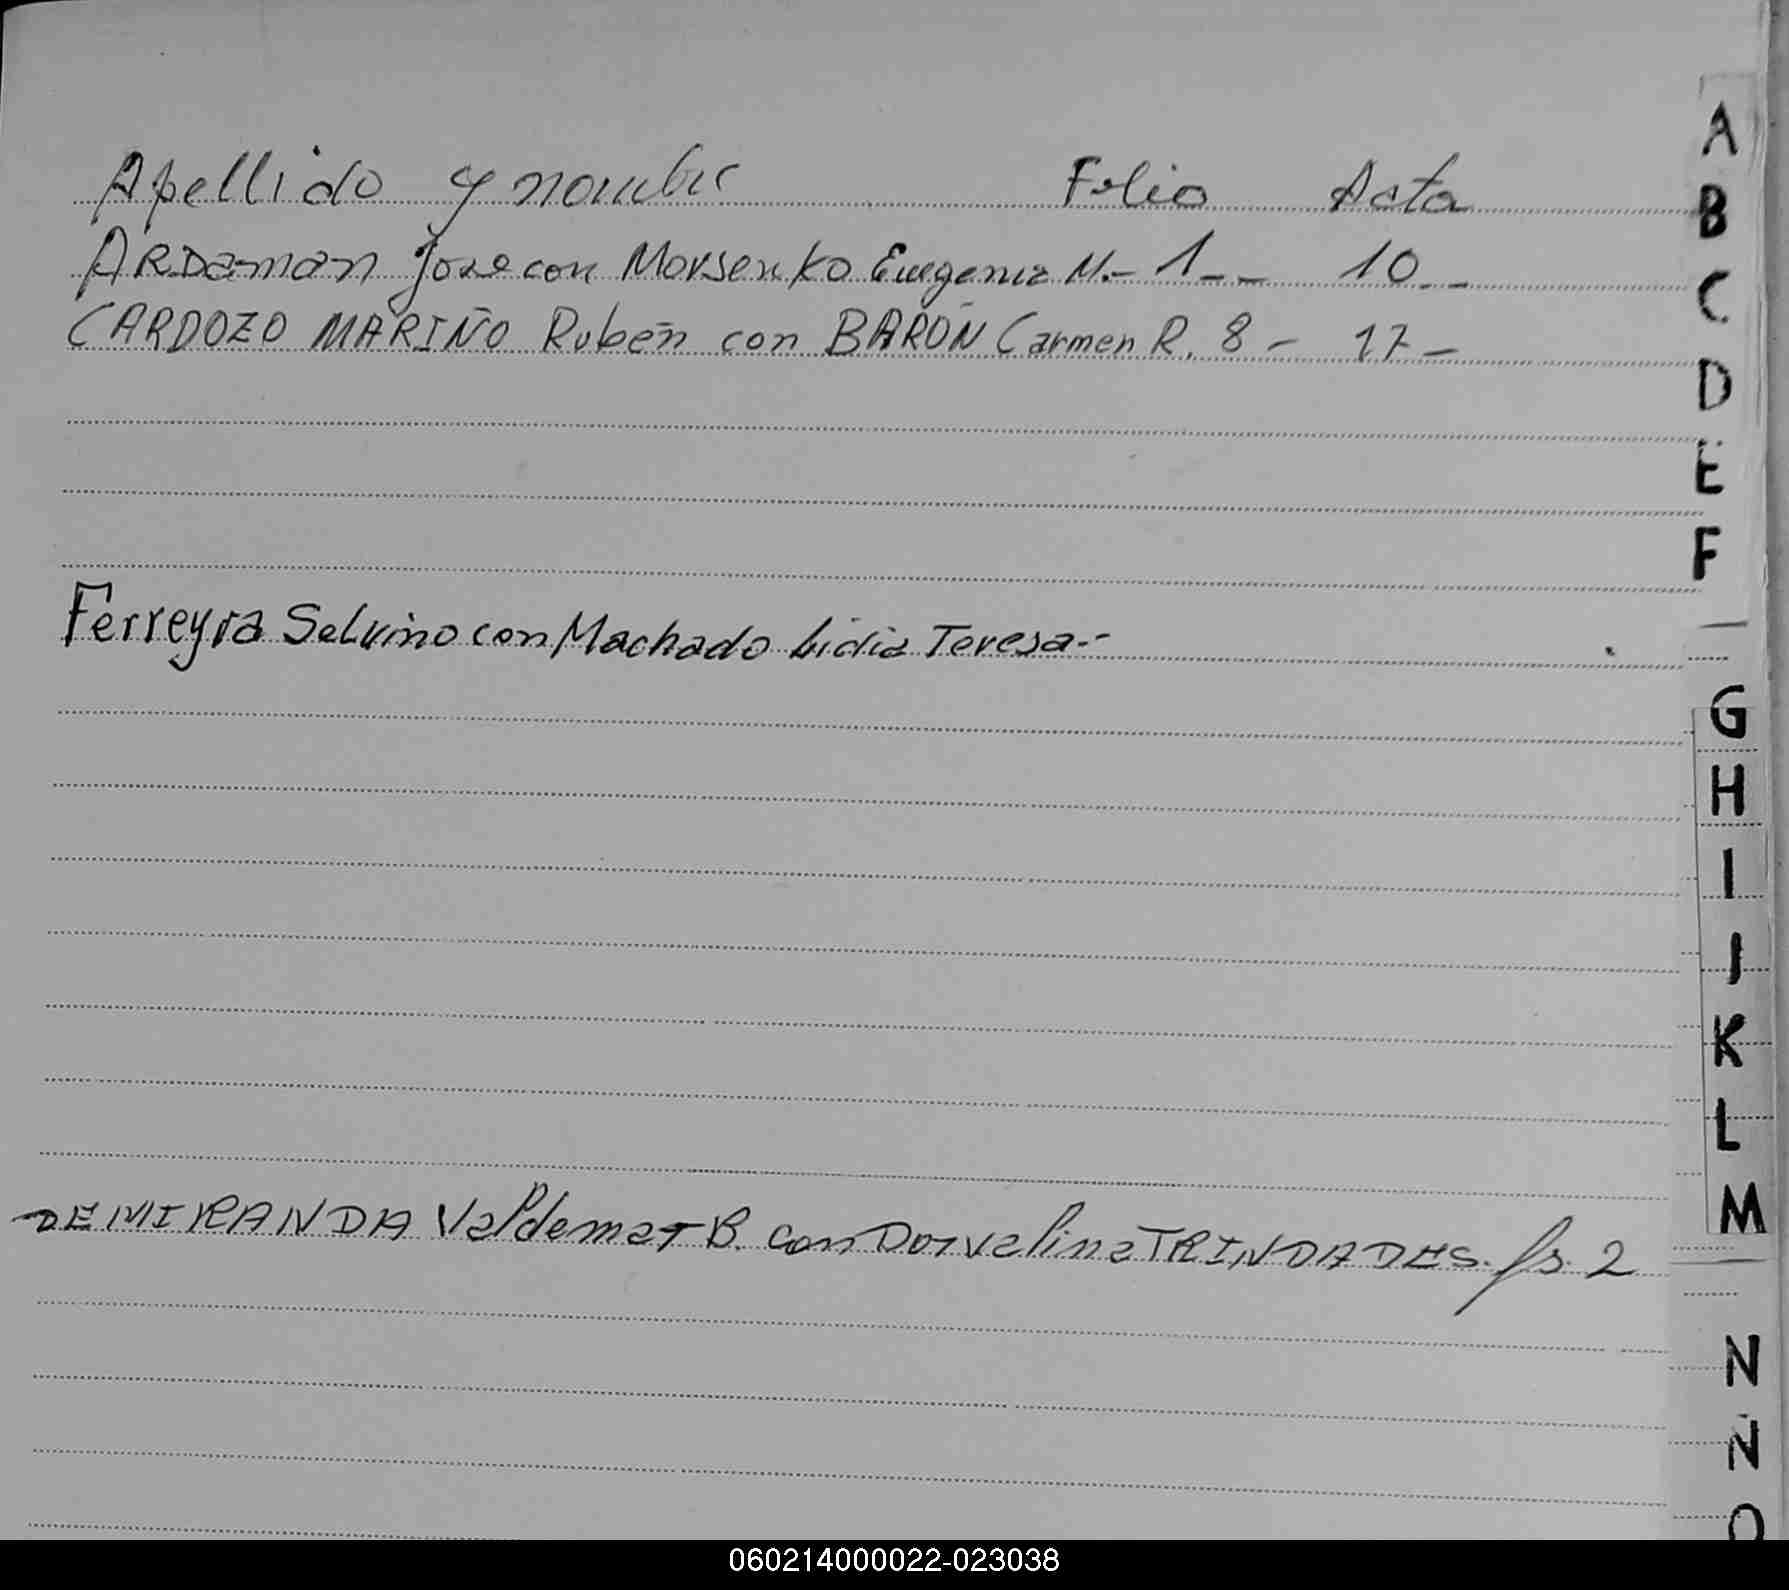 Apellido y nombre Folio Acta
ARDaman Jose con Morsenko Euegenia M.- 1-- 10--
CARDOZO MARIÑO Rubén con BARON Carmen R. 8 - 17 -
Ferreyra Selvino con Machado Lidia Teresa.-
DE MIRANDA Valdemar B. con Dorvelina TRINDADES. fs. 2
A
B
C
D
E
F
G
H
I
J
K
L
M
N
Ñ
O
060214000022-023038